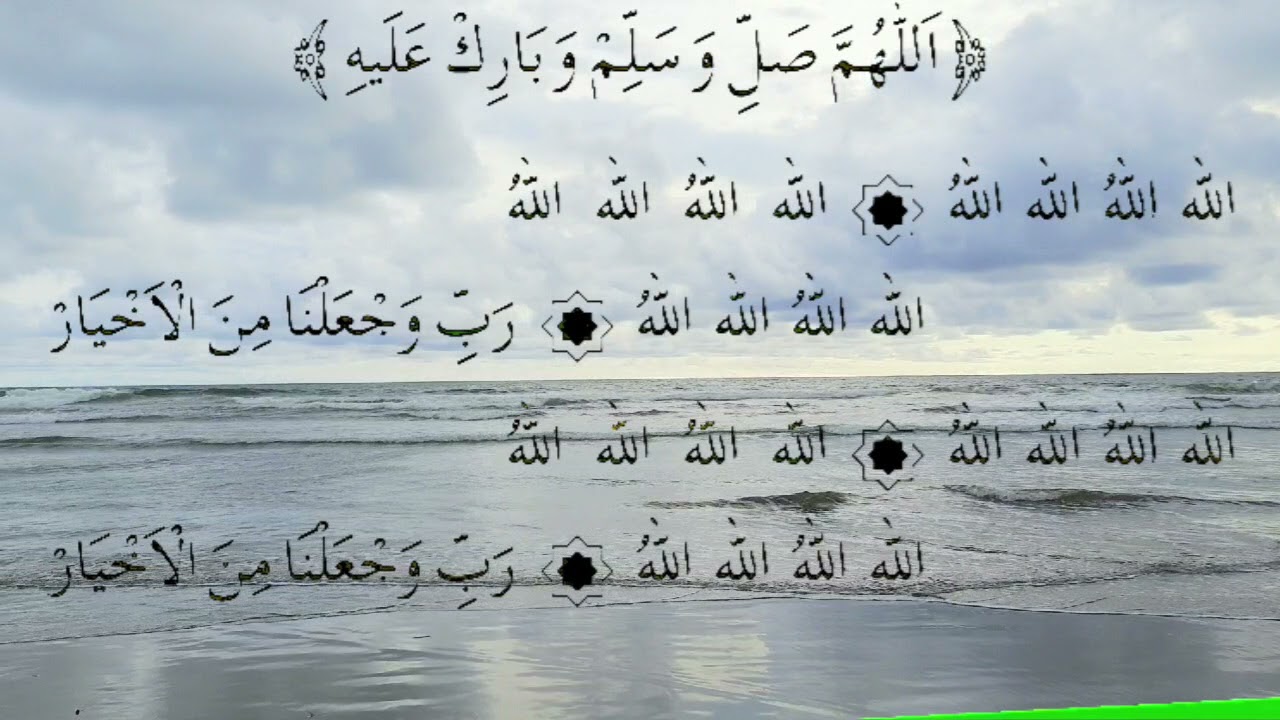 ﴿ اَللّٰهُمَّ صَلِّ وَ سَلِّمْ وَ بَارِكْ عَلَيهِ ﴾
اللّٰه اللّٰهُ اللّٰه اللّٰهُ ۞ اللّٰه اللّٰهُ اللّٰه اللّٰهُ
اللّٰه اللّٰهُ اللّٰه اللّٰهُ ۞ رَبِّ وَجْعَلْنَا مِنَ الْاَخْيَارْ
اللّٰه اللّٰهُ اللّٰه اللّٰهُ ۞ اللّٰه اللّٰهُ اللّٰه اللّٰهُ
اللّٰه اللّٰهُ اللّٰه اللّٰهُ ۞ رَبِّ وَجْعَلْنَا مِنَ الْاَخْيَارْ